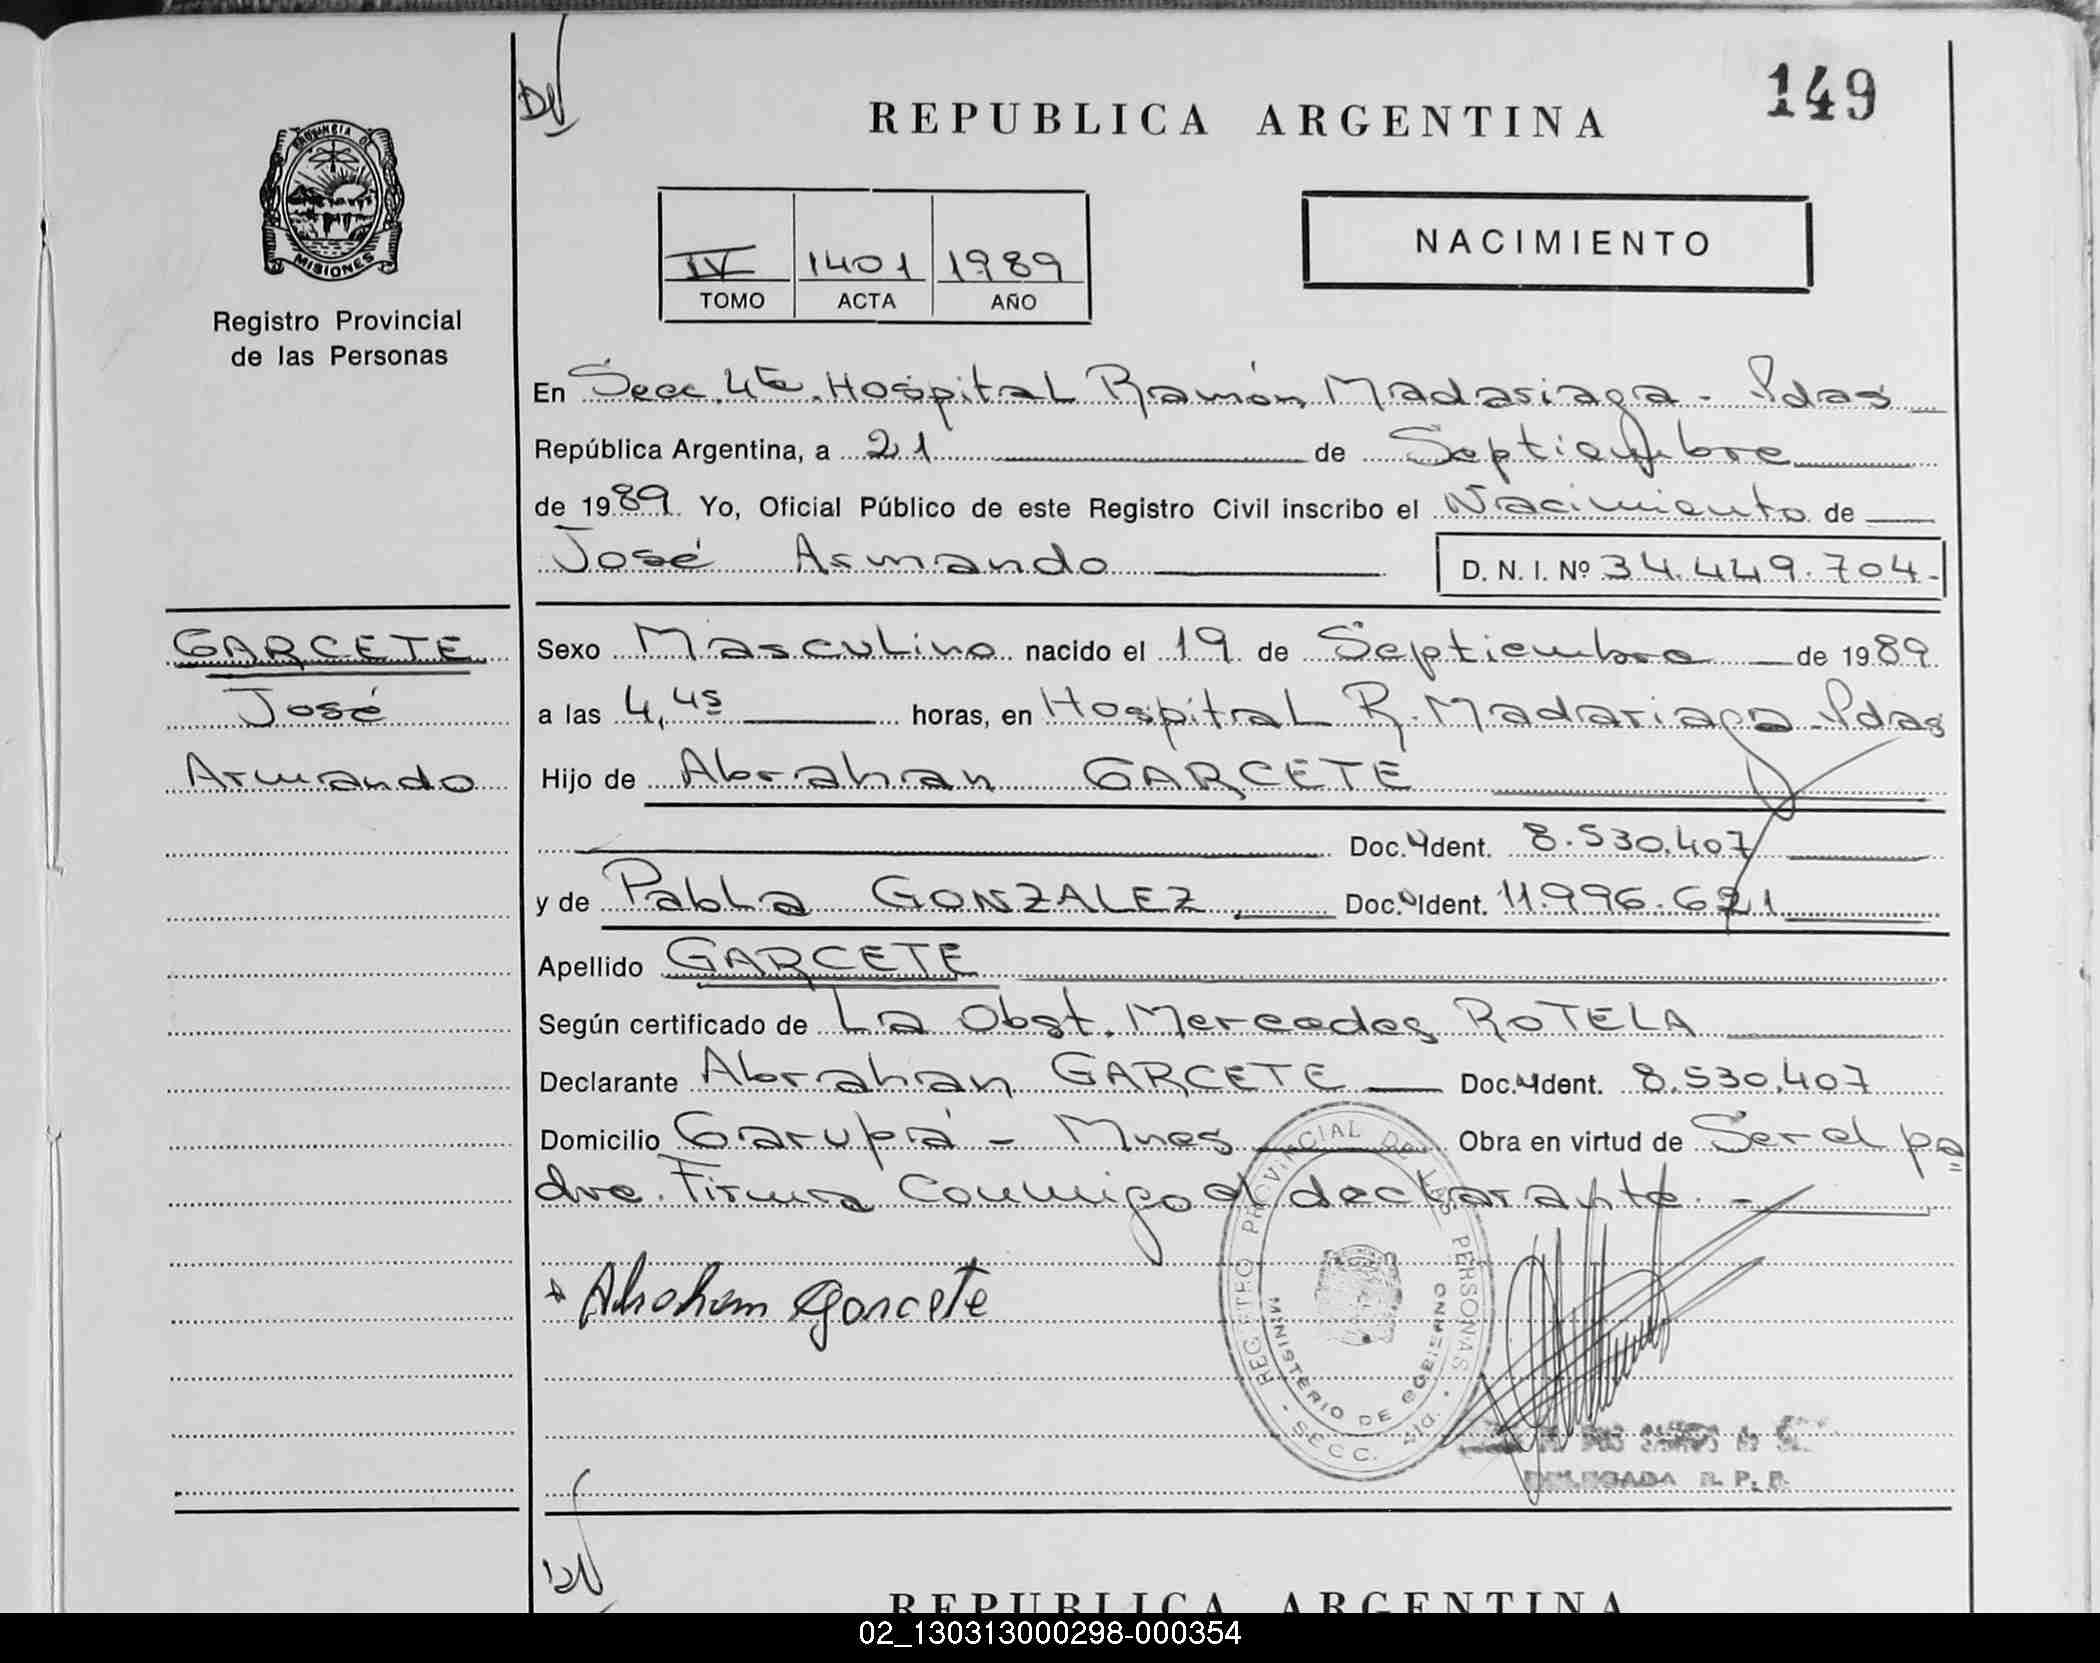 DN
REPUBLICA ARGENTINA
149
PROVINCIA DE
MISIONES
Registro Provincial
de las Personas
IV 1401 1989
TOMO ACTA AÑO
NACIMIENTO
En Secc. 4ta. Hospital Ramón Madariaga - Pdas
República Argentina, a 21 de Septiembre
de 1989. Yo, Oficial Público de este Registro Civil inscribo el Nacimiento de
José Armando D. N. I. Nº 34.449.704.-
GARCETE
José
Armando
Sexo Masculino nacido el 19 de Septiembre de 1989.
a las 4,45 horas, en Hospital R. Madariaga - Pdas
Hijo de Abrahan GARCETE
Doc. Ident. 8.530.407
y de Pabla GONZALEZ Doc. Ident. 11.996.621
Apellido GARCETE
Según certificado de La Obst. Mercedes ROTELA
Declarante Abrahan GARCETE Doc. Ident. 8.530.407
Domicilio Garupá - Mnes Obra en virtud de Ser el pa=
dre. Firma Conmigo el declarante. -
Abraham Garcete
REGISTRO PROVINCIAL DE LAS PERSONAS
MINISTERIO DE GOBIERNO
SECC. 4ta.
DELEGADA R. P. P.
DN
REPUBLICA ARGENTINA
02_130313000298-000354